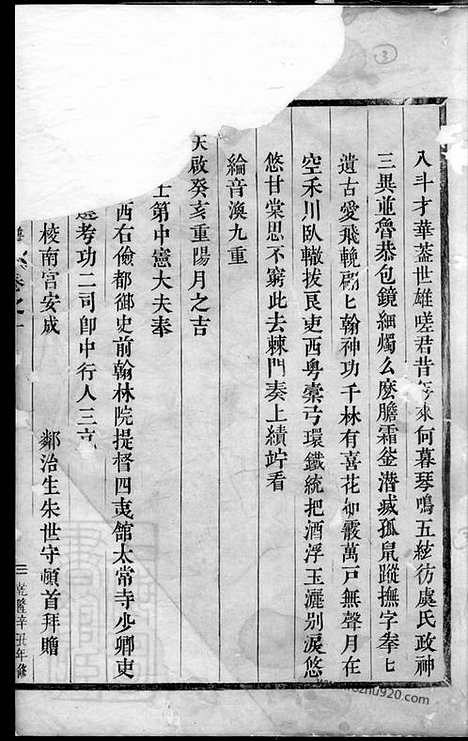 入斗才華蓋世雄嗟君昔年來何暮琴鳴五絃彷虞氏政神
三異並魯恭包鏡細燭么麽膽霜釜潛滅孤鼠蹤撫字拳匕
遺古愛飛輓匕翰神功千林有喜花柳霰萬戶無聲月在
空禾川臥轍拔艮吏西粵橐弓環鐵統把酒浮玉灑别淚悠
悠甘棠思不窮此去棘門奏上績竚看
綸音渙九重
天啟癸亥重陽月之吉
士第中憲大夫奉
西右僉都御史前翰林院提督四夷館太常寺少卿吏
考功二司郎中行人三
棱南宫安成 鄰治生朱世守頓首拜贈
卷之一
三 乾隆辛丑年修
3
www.guzhu920.com